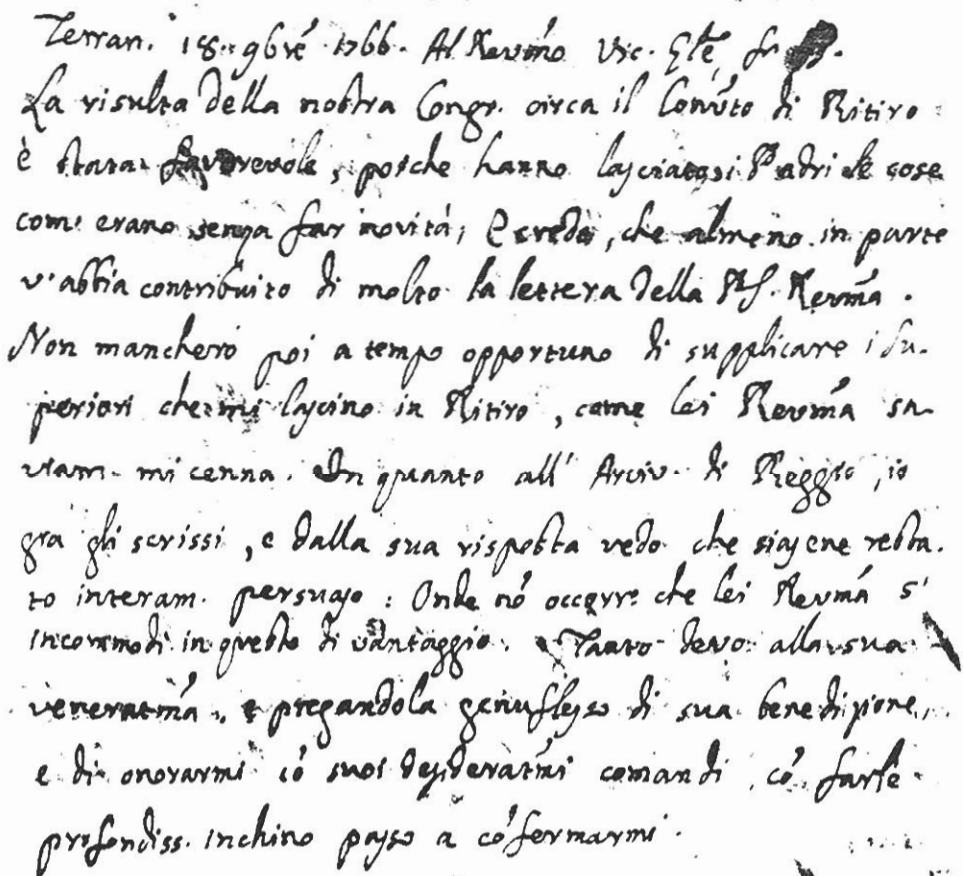 Terran. 18. 9bré 1766. Al Reveṁo Vic. Gle, fr
La risulta della nostra Congr. circa il Convẽto di Ritiro
è stata favorevole, poiche hanno lasciato i Padri le cose
com' erano senza far novità; E credo, che almeno in parte
v' abbia contribuito di molto la lettera della P.S. Revm̃a.
Non mancherò poi a tempo opportuno di supplicare i Su-
periori che mi lascino in Ritiro, come lei Revm̃a sa-
viam. mi cenna. In quanto all' Arciv. di Reggio, io
gia gli scrissi, e dalla sua risposta vedo che siasene resta-
to interam. persuaso: Onde nõ occorre che lei Revm̃a s'
incommodi in questo di vantaggio. Tanto devo alla sua
veneratm̃a, e pregandola genuflesso di sua benedizione,
e di onorarmi cõ suoi desideratm̃i comandi, cõ farle
profondiss. inchino passo a cõfermarmi.